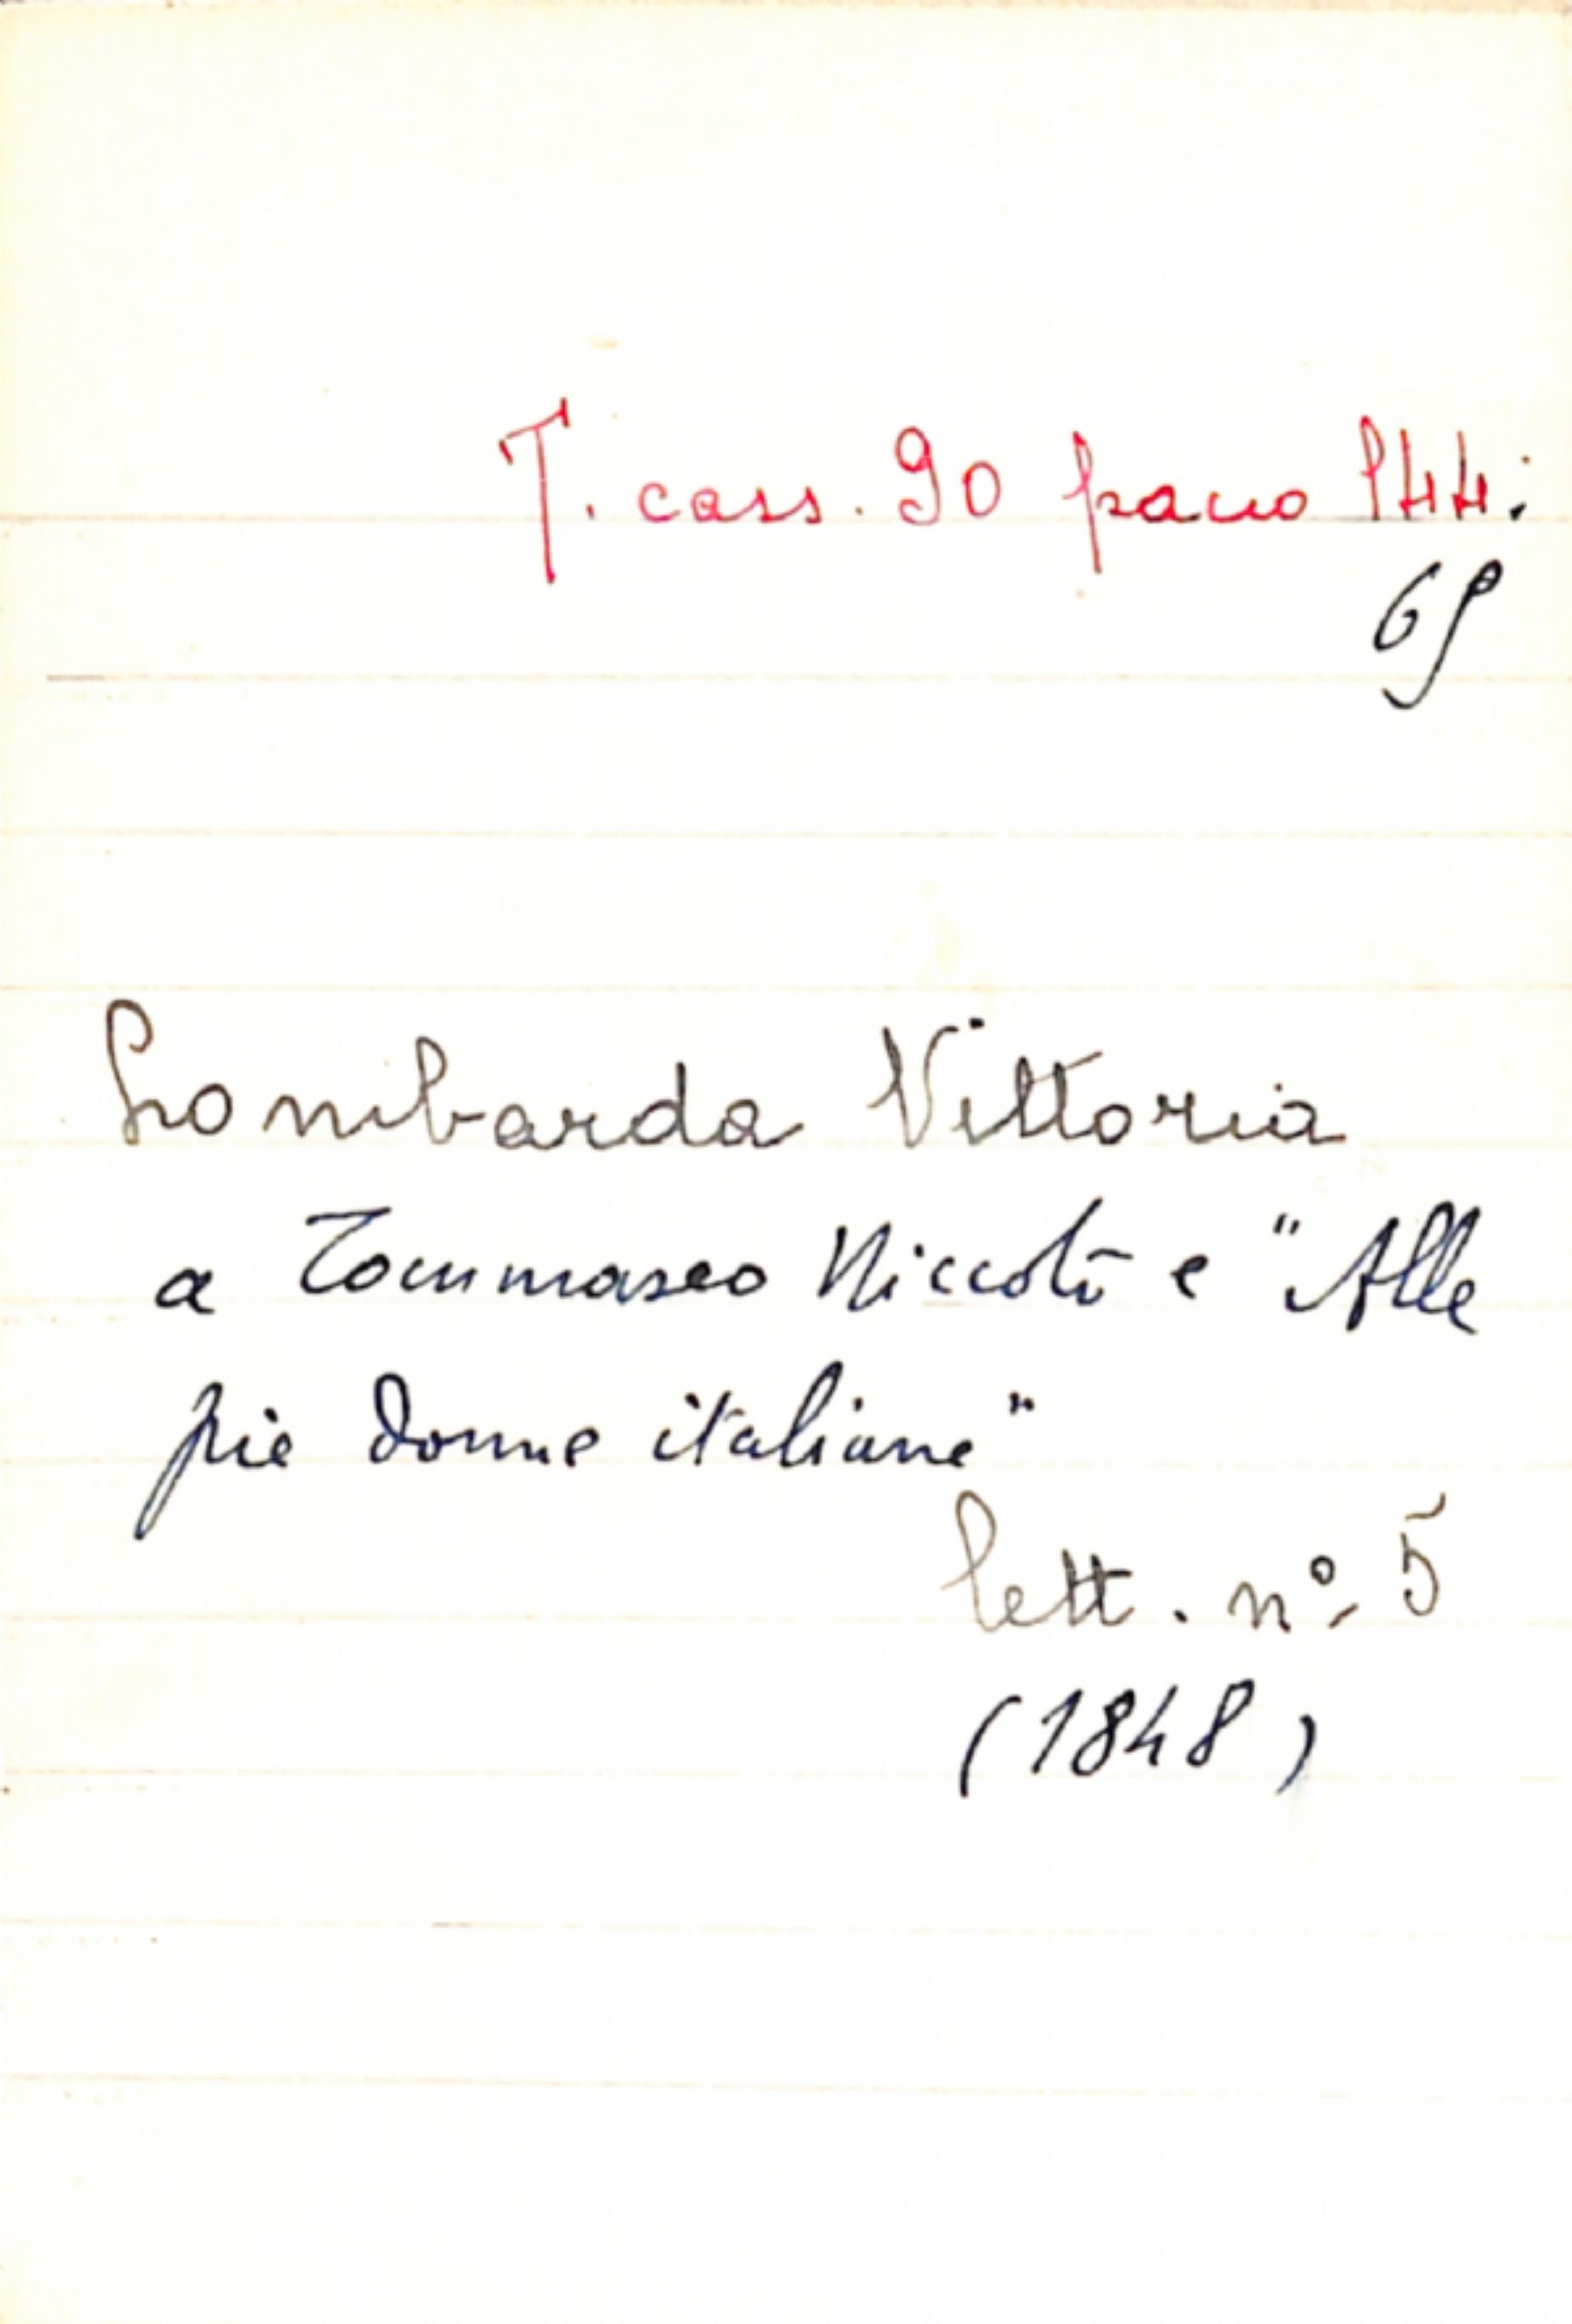 T. cass. 90 pacco 144:
69
Lombarda Vittoria
a Tommaseo Niccolò e "Alle
pie donne italiane"
lett. nº 5
(1848)